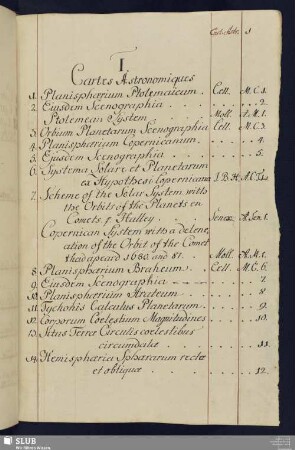 1
I
Cartes Astronomiques
1. Planisphærium Ptolemaicum. Cell. M.C. 1.
2. Eiusdem Scenographia . . . . 2.
Ptolemean System Moll. A.M. 1.
3. Orbium Planetarum Scenographia Cell. M.C. 3.
4. Planisphærium Copernicanum. 4.
5. Ejusdem Scenographia . . . 5.
6. Systema Solare et Planetarum
ex Hypothesi Copernicana I.B.H.
7. Scheme of the Solar System with
the Orbits of the Planets en
Comets. Halley. Senex. A.Sen. 1.
Copernican System with a deline-
ation of the Orbit of the Comet
that apeard 1680 and 81. Moll. A.M. 1.
8 Planisphærium Braheum. Cell. M.C. 6.
9. Ejusdem Scenographia 7.
10. Planisphærium Arateum 8
11. Tychonis Calculus Planetarum 9.
12. Corporum Coelestium Magnitudines 10.
13. Situs Terræ Circulis coelestibus
circumdatæ 11.
14. Hemisphæria Sphærarum rectæ
et obliquæ 12.
SLUB
Wir führen Wissen.